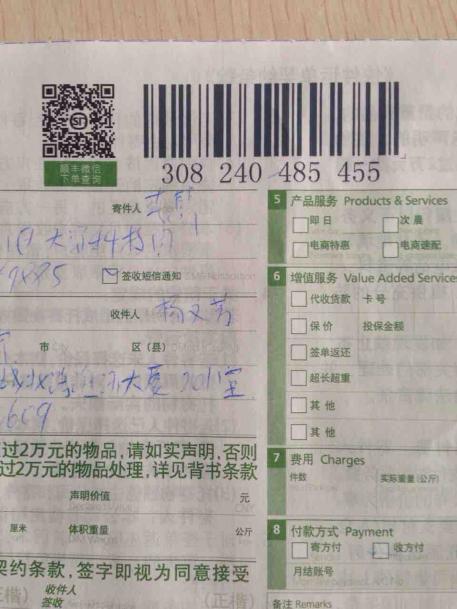 顺丰微信
下单查询
308 240 485 455
寄件人
签收短信通知
收件人
市 区（县）
过2万元的物品，请如实声明，否则
过2万元的物品处理，详见背书条款
声明价值 元
厘米 体积重量 公斤
契约条款，签字即视为同意接受
收件人
签收
(正楷)
5 产品服务 Products & Services
即日 次晨
电商特惠 电商速配
6 增值服务 Value Added Service
代收货款 卡号
保价 投保金额
签单返还
超长超重
其他
其他
7 费用 Charges
件数 实际重量(公斤)
8 付款方式 Payment
寄方付 收方付
月结账号
备注 Remarks